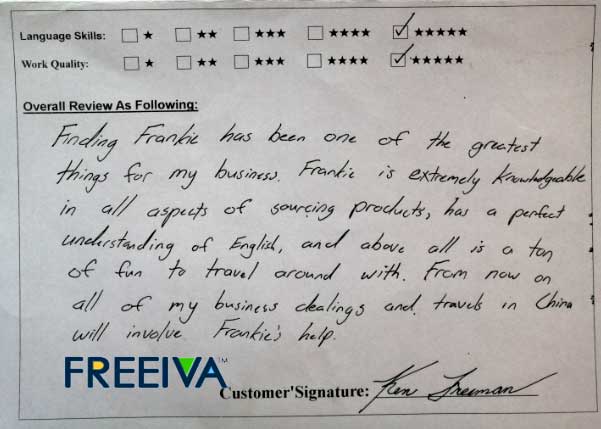 Language Skills: ☐ ★ ☐ ★★ ☐ ★★★ ☐ ★★★★ ☑ ★★★★★
Work Quality: ☐ ★ ☐ ★★ ☐ ★★★ ☐ ★★★★ ☑ ★★★★★
Overall Review As Following:
Finding Frankie has been one of the greatest
things for my business. Frankie is extremely knowledgeable
in all aspects of sourcing products, has a perfect
understanding of English, and above all is a ton
of fun to travel around with. From now on
all of my business dealings and travels in China
will involve Frankie's help.
FREEIVA™
Customer'Signature: Ken Freeman